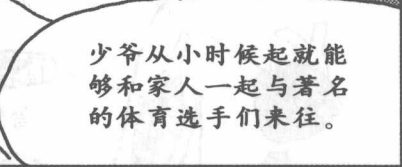 少爷从小时候起就能
够和家人一起与著名
的体育选手们来往。